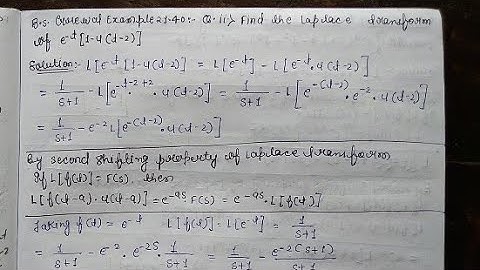 B.S. Grewal Example 21.40:- Q.ii) Find the Laplace transform
of e^-t [1-u(t-2)]
Solution:- L[e^-t [1-u(t-2)] = L[e^-t] - L[e^-t . u(t-2)]
= 1/(s+1) - L[e^(-t-2+2) . u(t-2)] = 1/(s+1) - L[e^-(t-2) . e^-2 . u(t-2)]
= 1/(s+1) - e^-2 L[e^-(t-2) . u(t-2)]
By second shifting property of Laplace transform
If L[f(t)] = F(s), then
L[f(t-a) . u(t-a)] = e^-as F(s) = e^-as . L[f(t)]
Taking f(t) = e^-t L[f(t)] = L[e^-t] = 1/(s+1)
= 1/(s+1) - e^-2 . e^-2s . 1/(s+1) = 1/(s+1) - e^-2(s+1)/(s+1)